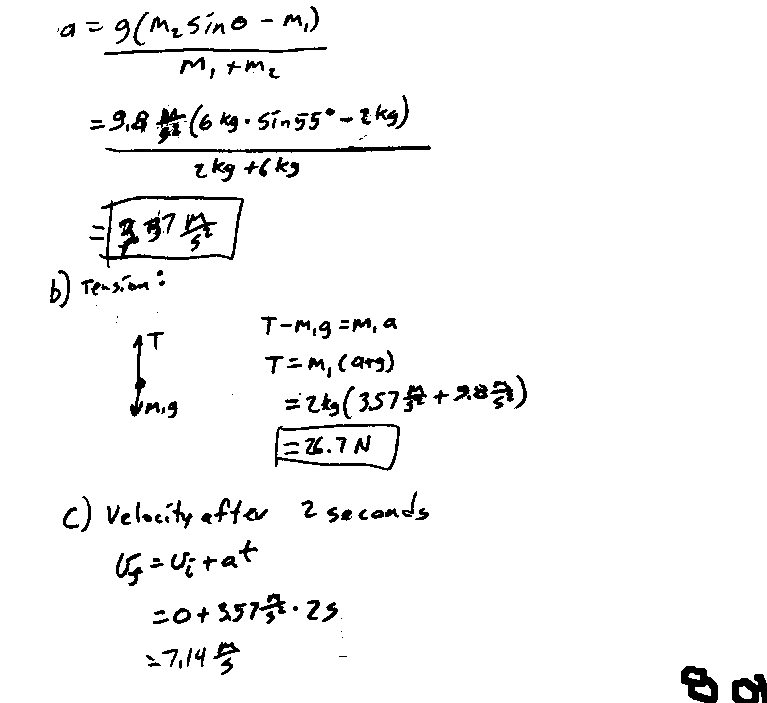 a = g(m₂ sinθ - m₁)
m₁ + m₂
= 9.8 m/s² (6 kg · sin 55° - 2 kg)
2 kg + 6 kg
= 3.57 m/s²
b) Tension:
T
m₁g
T - m₁g = m₁a
T = m₁(a+g)
= 2kg(3.57 m/s² + 9.8 m/s²)
= 26.7 N
c) Velocity after 2 seconds
v_f = v_i + at
= 0 + 3.57 m/s² · 2s
= 7.14 m/s